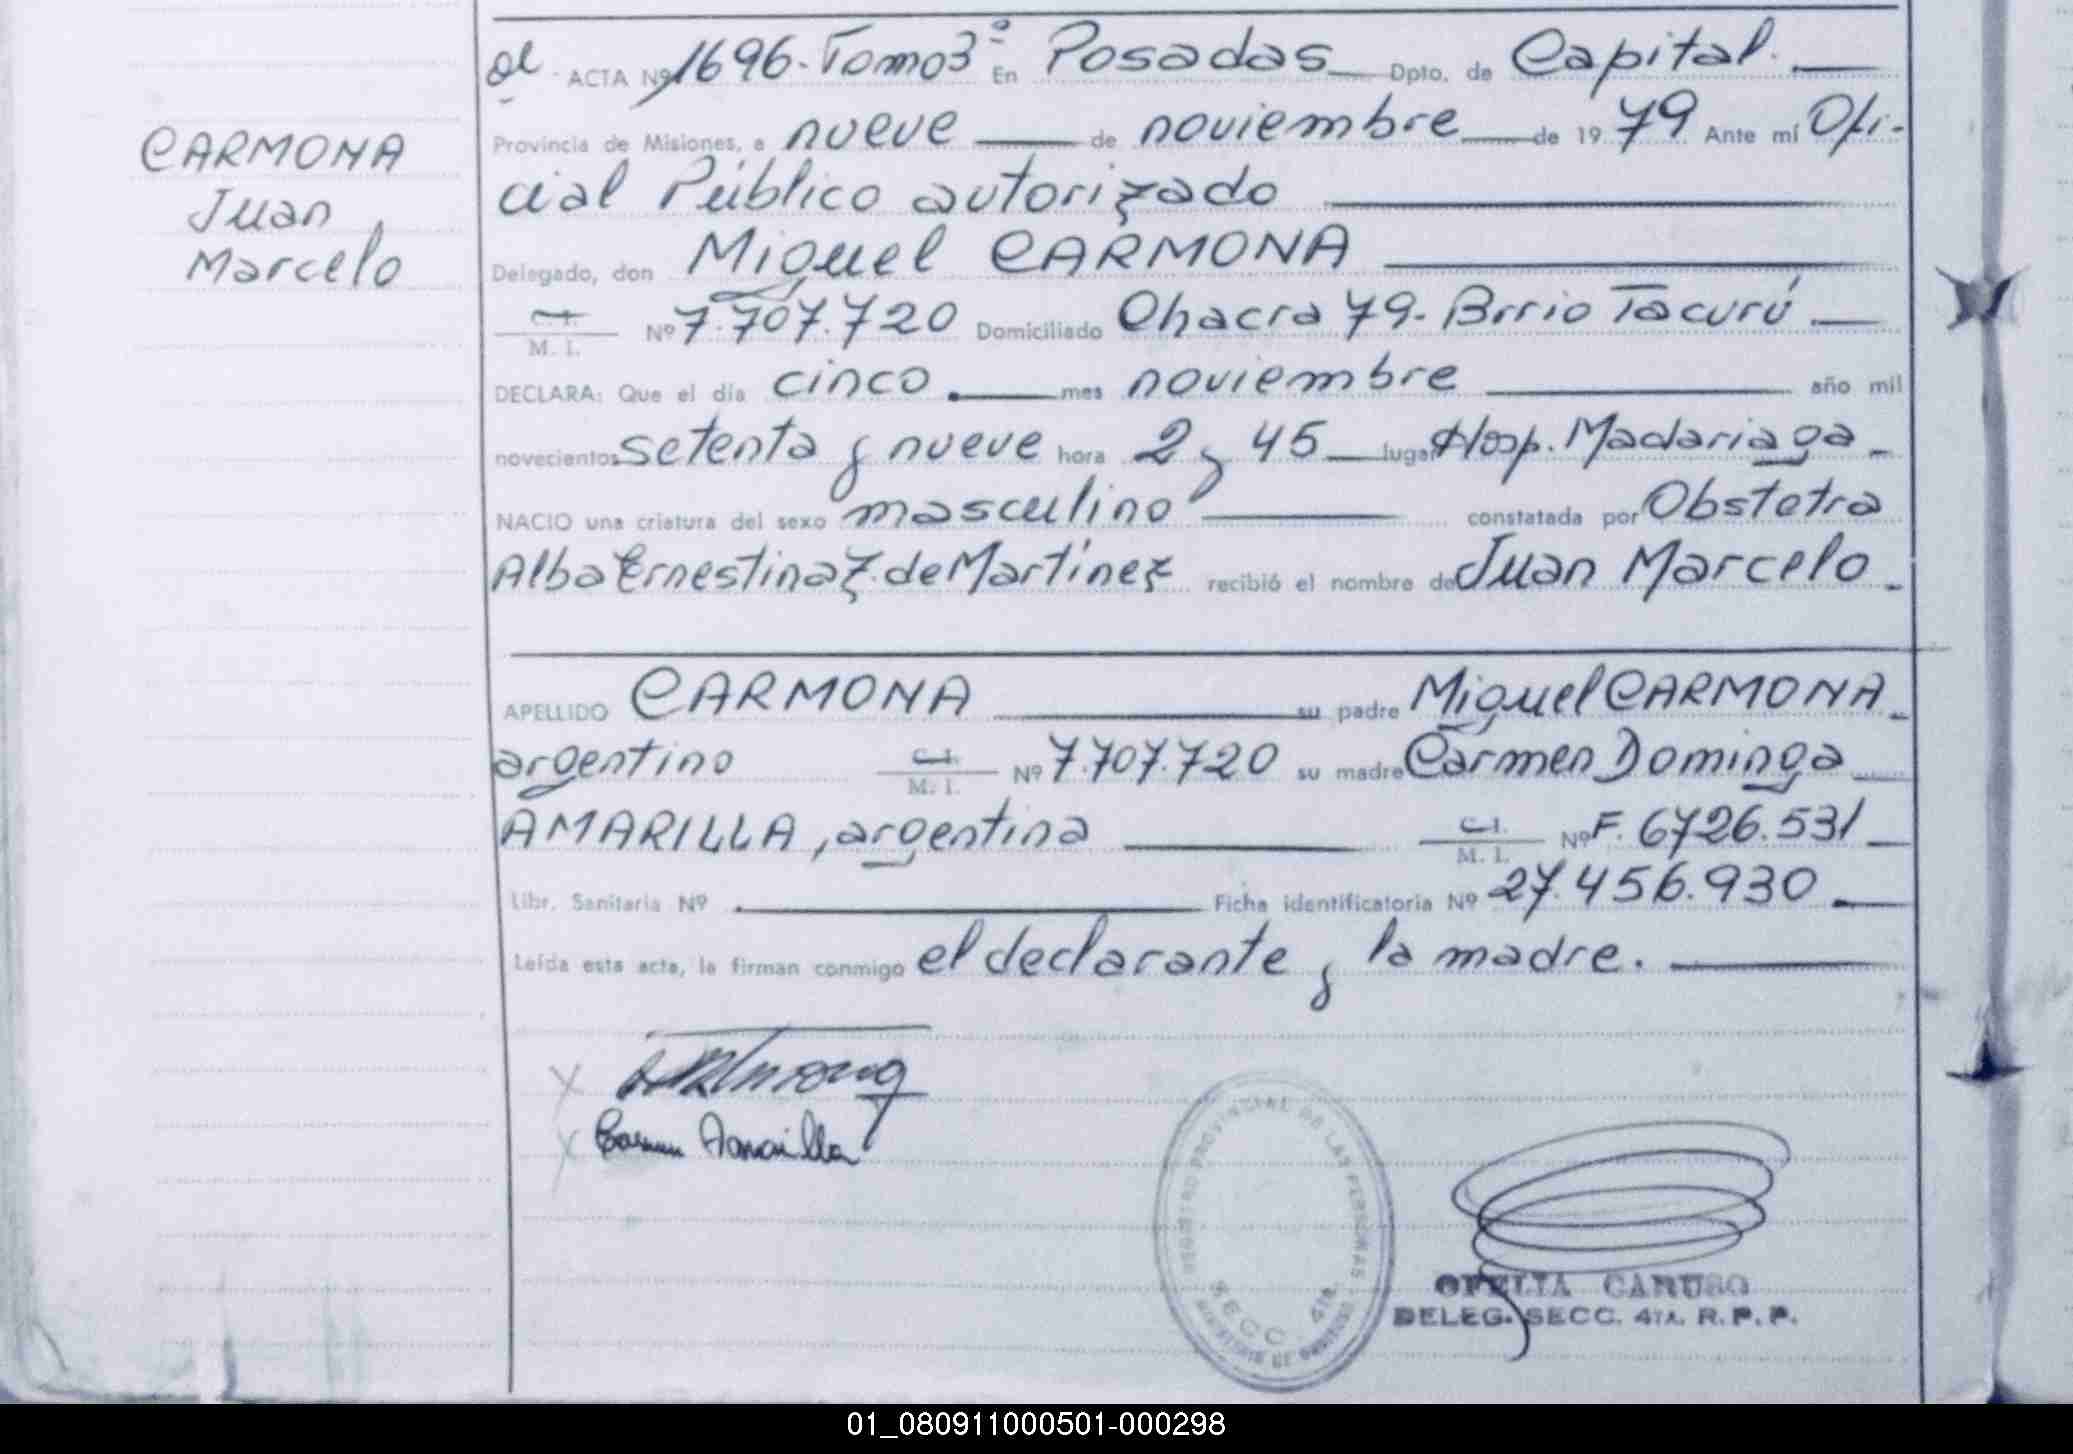 CARMONA
Juan
Marcelo
ACTA Nº 1696. Tomo 3º En Posadas Dpto. de Capital.
Provincia de Misiones, a nueve de noviembre de 19 79 Ante mí Ofi-
cial Público autorizado
Delegado, don Miguel CARMONA
C. I.
M. I. Nº 7.707.720 Domiciliado Chacra 79. Brrio Tacurú
DECLARA: Que el día cinco. mes noviembre año mil
novecientos setenta y nueve hora 2 y 45 lugar Hosp. Madariaga
NACIO una criatura del sexo masculino constatada por Obstetra
Alba Ernestina Z. de Martínez recibió el nombre de Juan Marcelo
APELLIDO CARMONA su padre Miguel CARMONA
argentino C. I. M. I. Nº 7.707.720 su madre Carmen Dominga
AMARILLA, argentina C. I. M. I. Nº F. 6726.531
Libr. Sanitaria Nº Ficha identificatoria Nº 27.456.930
Leída esta acta, la firman conmigo el declarante y la madre.
X
X Carmen Amarilla
REGISTRO PROVINCIAL DE LAS PERSONAS
SECC. 4ta.
OFELIA CARUSO
DELEG. SECC. 4TA. R. P. P.
01_080911000501-000298